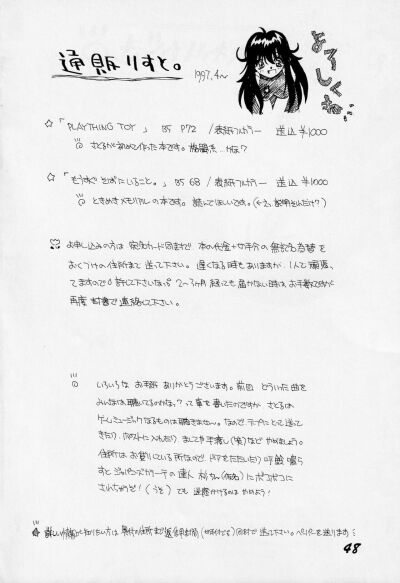 通販りすと。
1997.4〜
よろしくね
☆「PLAYTHING TOY」 B5 P72 /表紙フルカラー 送込 ¥1000
さとるがはじめて作った本です。
☆「もうすぐ そばにいること。」 B5 68 /表紙フルカラー 送込 ¥1000
ときめきメモリアルの本です。読んでほしいです。(←え、説明それだけ?)
お申し込みの方は 宛名カード同封で、本の代金+切手分の無記名為替を
おくづけの住所まで送って下さい。遅くなる時もありますが、1人で頑張っ
てますので 許して下さいなっ。2〜3ヶ月経っても届かない時は、お手数ですが
再度 封書で連絡して下さい。
いろいろな お手紙 ありがとうございます。前回 どういった曲を
みんなは聴いてるのかな?って事を書いたのですが、さとるは
ゲームミュージックなるものは聴きませーん。なので、テープにとって送って
きたり、ポストに入れたり、ましてや手渡し(笑)など やめましょう。
住所は お借りしている所なので、ドアをたたいたり 呼鈴 鳴ら
すと ジャパニーズカラーテの達人 (仮名)にボコボコに
されちゃうぞ!(うそ)でも 迷惑かけるのは やめよう!
☆ 詳しい情報が知りたい方は 奥付の住所まで返信用封筒(切手付き)同封で送って下さい。ペーパーを送ります
48